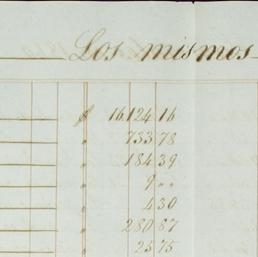 Los mismos
$ 16124 16
" 733 78
" 184 39
" 9 " "
" 4 30
" 280 87
" 25 75